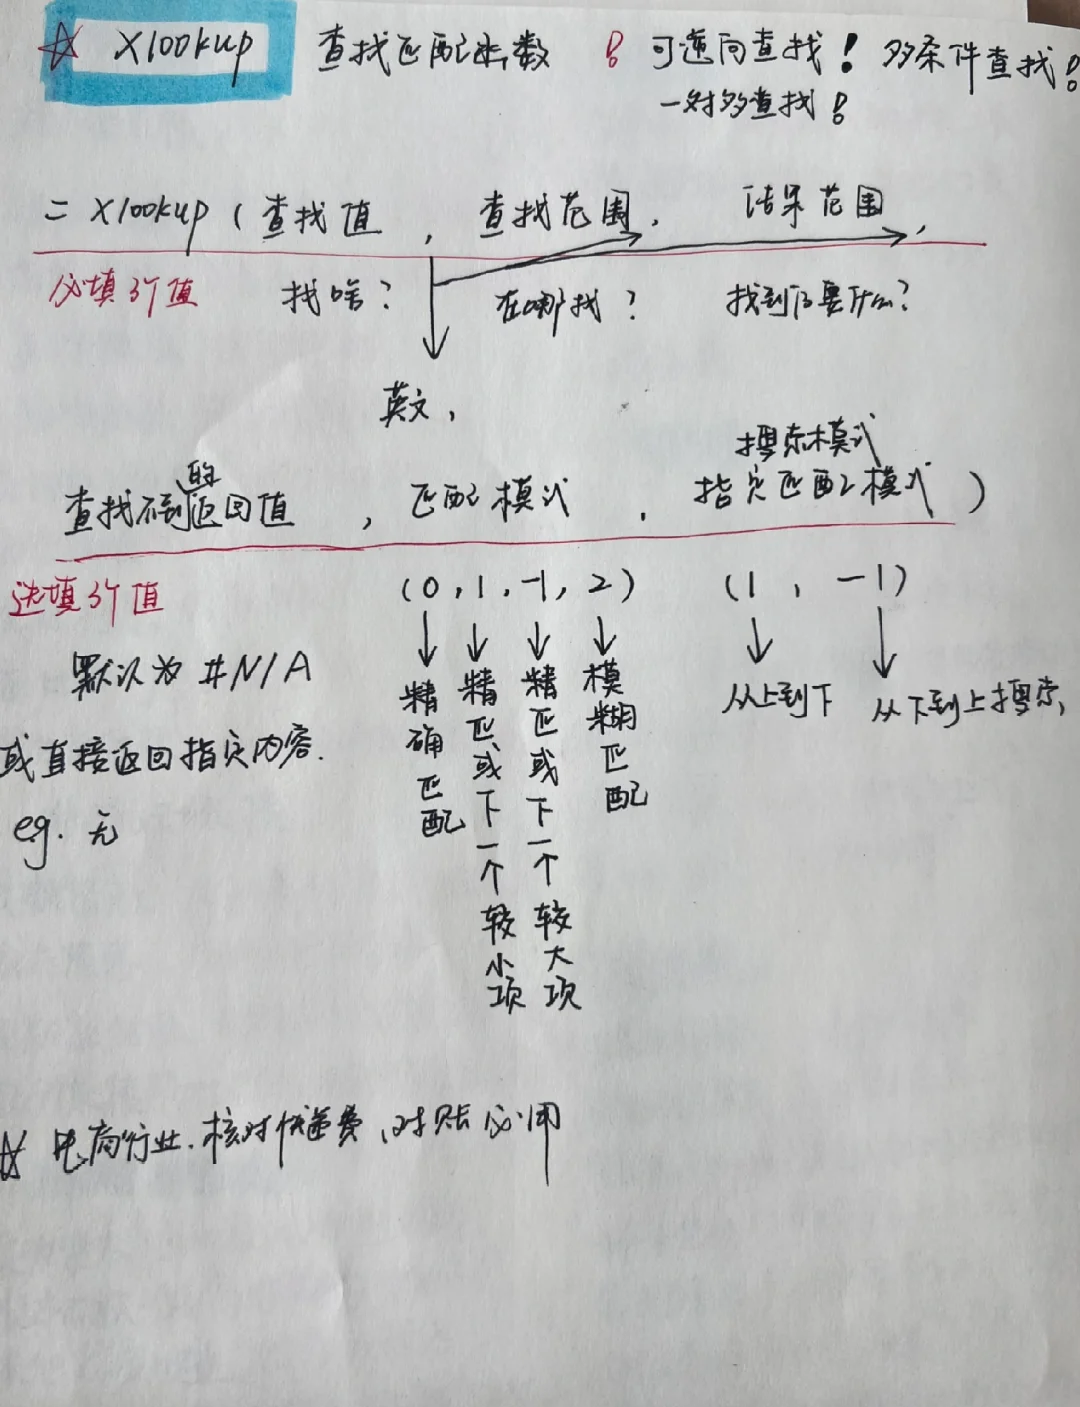 ☆ Xlookup 查找匹配函数 ! 可逆向查找! 多条件查找!
一对多查找!
= Xlookup (查找值 , 查找范围, 结果范围,
必填3个值 找啥? 在哪找? 找到了要什么?
英文,
搜索模式
查找不到的返回值 , 匹配模式 , 指定匹配模式 )
选填3个值 (0,1,-1,2) (1, -1)
默认为 #N/A
或直接返回指定内容.
eg. 无
精确匹配
精匹或下一个较小项
精匹或下一个较大项
模糊匹配
从上到下
从下到上搜索,
☆ 电商行业.核对快递费、对账必用